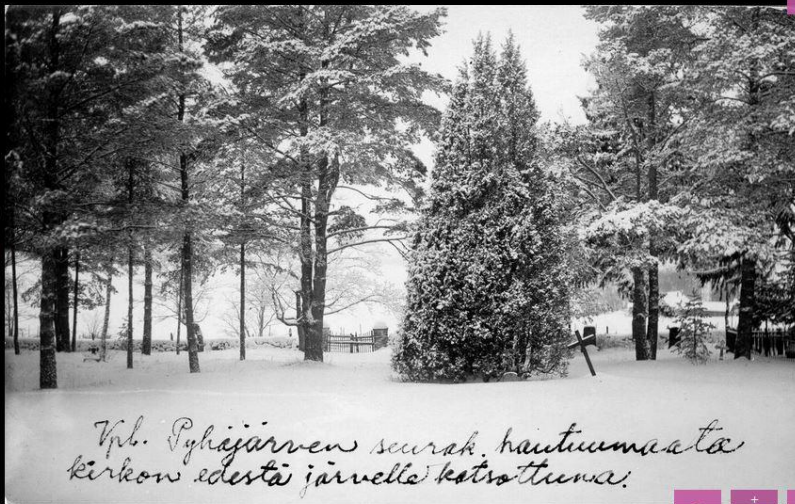 Vpl. Pyhäjärven seurak. hautuumaata
kirkon edestä järvelle katsottuna.